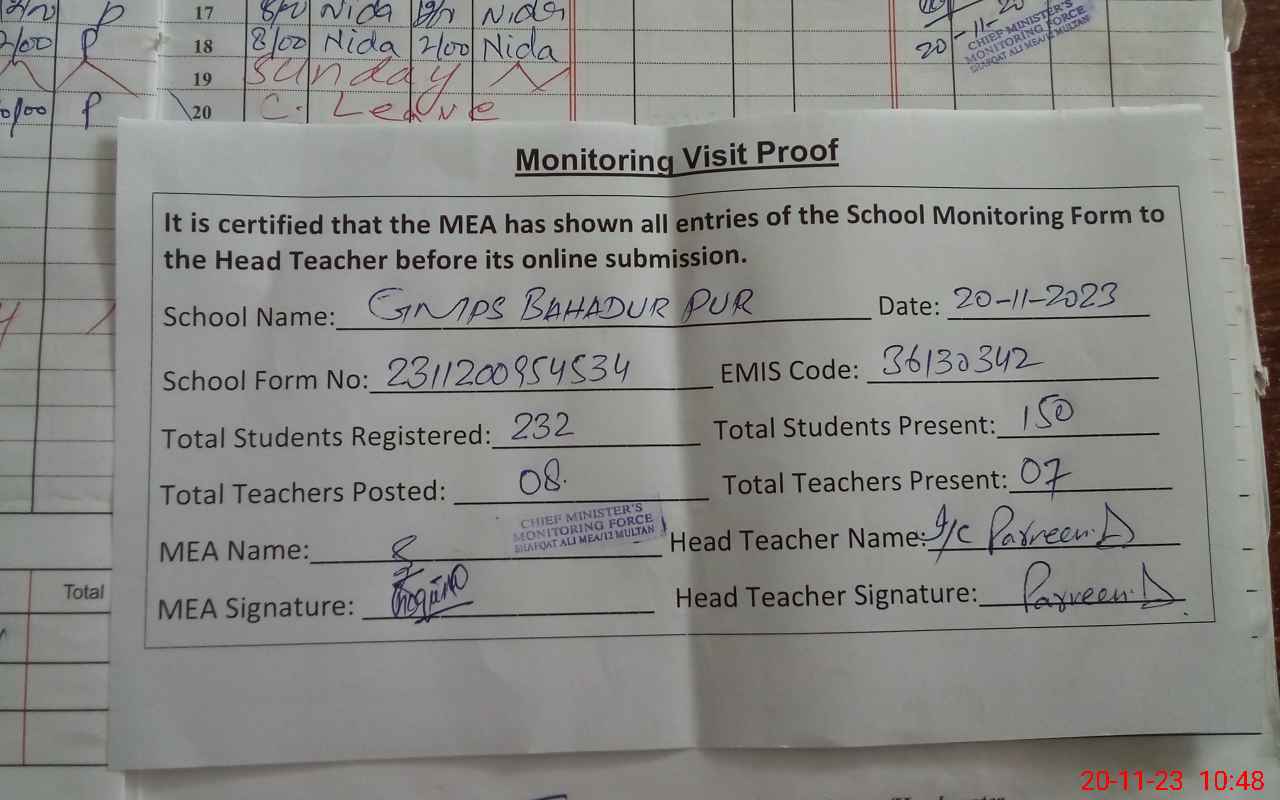 12/00 P 17 8/00 Nida 12/00 Nida
2/00 P 18 8/00 Nida 2/00 Nida
20-11-20
CHIEF MINISTER'S
MONITORING FORCE
SHAFQAT ALI MEA/12 MULTAN
19 Sunday
P 20 C. Leave
Monitoring Visit Proof
It is certified that the MEA has shown all entries of the School Monitoring Form to
the Head Teacher before its online submission.
School Name: GMPS BAHADUR PUR Date: 20-11-2023
School Form No: 2311200954534 EMIS Code: 36130342
Total Students Registered: 232 Total Students Present: 150
Total Teachers Posted: 08. Total Teachers Present: 07
CHIEF MINISTER'S
MONITORING FORCE
SHAFQAT ALI MEA/12 MULTAN
MEA Name: Head Teacher Name: I/C Parveen.D
MEA Signature: Head Teacher Signature: Parveen.D
Total
20-11-23 10:48